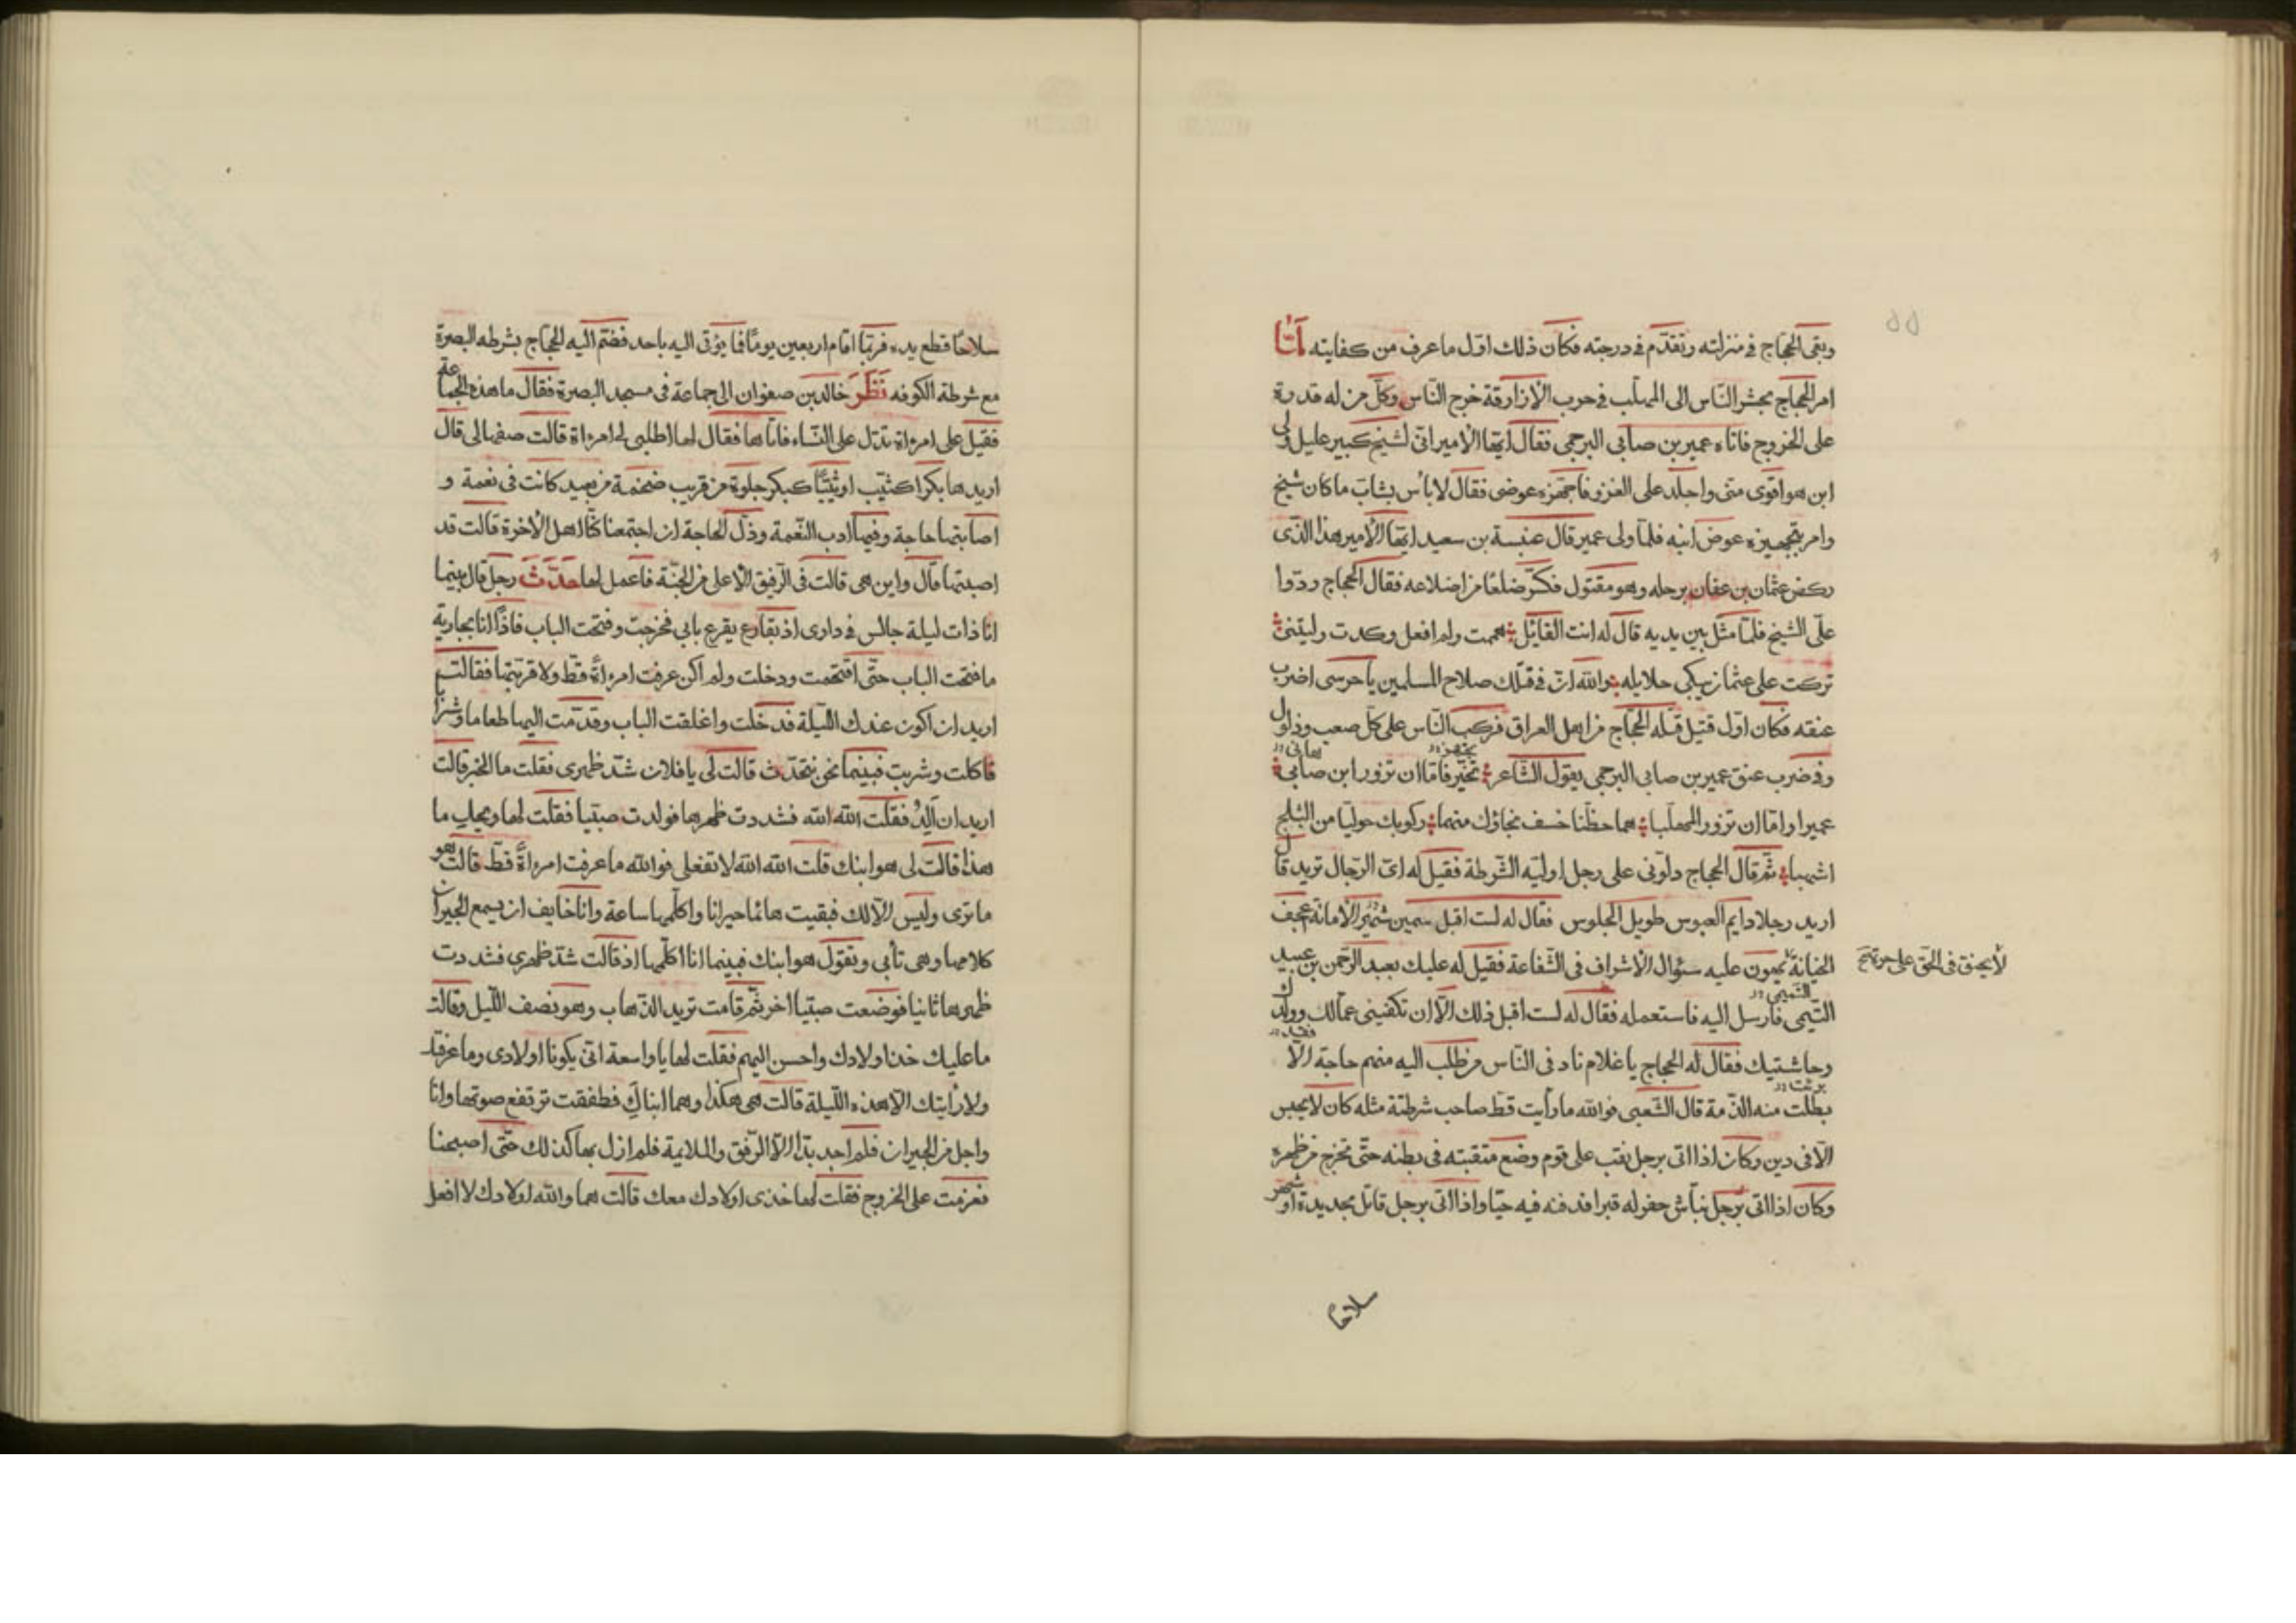 وبقى الحجاج فى منزلته وتقدّم فى درجته فكان ذلك اوّل ما عرف من كفايته لمّا
امر الحجاج بحشر النّاس الى المهلّب فى حرب الازارقة خرج النّاس وكلّ من له قدرة
على الخروج فاتاه عمير بن صابى البرجمى فقال ايّها الامير انّى لشيخ كبير عليل ولى
ابن هو اقوى منّى واجلد على الغزو فاجهّزه عوضى فقال لا بأس بشابّ ما كان شيخ
وامر بتجهيزه عوض ابنه فلمّا ولى عمير قال عنبسة بن سعيد ايّها الامير هذا الّذى
ركض عثمان بن عفان برجله وهو مقتول فكسّر ضلعًا من اضلاعه فقال الحجاج ردّوا
علّى الشيخ فلمّا مثّل بين يديه قال له انت القائل هممت ولم افعل وكدت وليتنى
تركت على عثمان يبكى حلايله والله انّ فى قتلك صلاح المسلمين يا حرسى اضرب
عنقه فكان اوّل قتيل قتله الحجّاج من اهل العراق فركب النّاس على كلّ صعب وذلول
وفى ضرب عنق عمير بن صابى البرجمى يقول الشّاعر تخيّر فامّا ان تزور ابن صابى
عميرا وامّا ان تزور المهلّبا هما خطّتا خسف نجاؤك منهما ركوبك حوليّا من الثلج
اشهبا ثمّ قال الحجاج دلّونى على رجل اولّيه الشّرطة فقيل له اىّ الرّجال تريد قال
اريد رجلا دايم العبوس طويل الجلوس سمين الامانة عجف
الخيانة يهون عليه سئوال الاشراف فى الشّفاعة فقيل له عليك بعبد الرّحمن بن عبيد
لا يحنق فى الحق على
التّيمى فارسل اليه فاستعمله فقال له لست اقبل ذلك الّا ان تكفينى عمّالك وولدك
وحاشتيك فقال له الحجاج يا غلام ناد فى النّاس من طلب اليه منهم حاجة الّا
بطلت منه الذّمة قال الشّعبى فوالله ما رأيت قطّ صاحب شرطتة مثله كان لا يحبس
الّا فى دين وكان اذا اتى برجل نقب على قوم وضع منقبته فى بطنه حتّى تخرج من ظهره
وكان اذا اتى برجل نبّاش حفر له قبرا فدفنه فيه حيّا واذا اتى برجل قاتل بحديدة او شهر
سلاحًا
سلاحًا قطع يده فربّما اقام اربعين يومًا فما يؤتى اليه باحد فضمّ اليه الحجّاج بشرطه البصرة
مع شرطة الكوفه نَظَرَ خالد بن صفوان الى جماعة فى مسجد البصرة فقال ما هذه الجماعة
فقيل على امرءاة تدّل على النّساء فاتاها فقال لها اطلبى لى امرءاة قالت صفها لى قال
اريدها بكرا كثيّب او ثيّبًا كبكر حلوة من قريب ضخمة من بعيد كانت فى نعمة و
اصابتها حاجة وفيها ادب النّعمة وذلّ الحاجة ان اجتمعنا كنّا اهل الآخرة قالت قد
اصبتها قال واين هى قالت فى الرّفيق الاعلى من الجنّة فاعمل لها حَدَّثَ رجل قال بينما
انا ذات ليلة جالس فى دارى اذ بقارع يقرع بابى فخرجت وفتحت الباب فاذًا انا بجارية
ما فتحت الباب حتّى اقتحمت ودخلت ولم اكن عرفت امرءاةً قطّ ولا قربتها فقالت
اريد ان اكون عندك اللّيلة فدخلت واغلقت الباب وقدّمت اليها طعاما وشرابا
فاكلت وشربت فبينما نحن نتحدّث قالت لى يا فلان شدّ ظهرى فقلت ما الخبر قالت
اريد ان اَلِدُ فقلت الله الله فشددت ظهرها فولدت صبيّا فقلت لها ويحك ما
هذا قالت لى هو ابنك قلت الله الله لا تفعلى فوالله ما عرفت امرءاةً قطّ قالت هو
ما ترى وليس الّا لك فبقيت هائما حيرانا واكلّمها ساعة وانا خايف ان يسمع الجيران
كلامها وهى تأبى وتقول هو ابنك فبينما انا اكلّمها اذ قالت شدّ ظهرى فشددت
ظهرها ثانيا فوضعت صبيّا اخر ثمّ قامت تريد الذّهاب وهو نصف اللّيل وقالت
ما عليك خذ اولادك واحسن اليهم فقلت لها يا واسعة انّى يكونا اولادى وما عرفتك
ولا رأيتك الّا هذه اللّيلة قالت هى هكذا وهما ابناك فطفقت ترتفع صوتها وانا
واجل من الجيران فلم اجد بدّا الّا الرّفق والملايمة فلم ازل بها كذلك حتّى اصبحنا
فعزمت على الخروج فقلت لها خذى اولادك معك قالت هما والله اولادك لا افعل